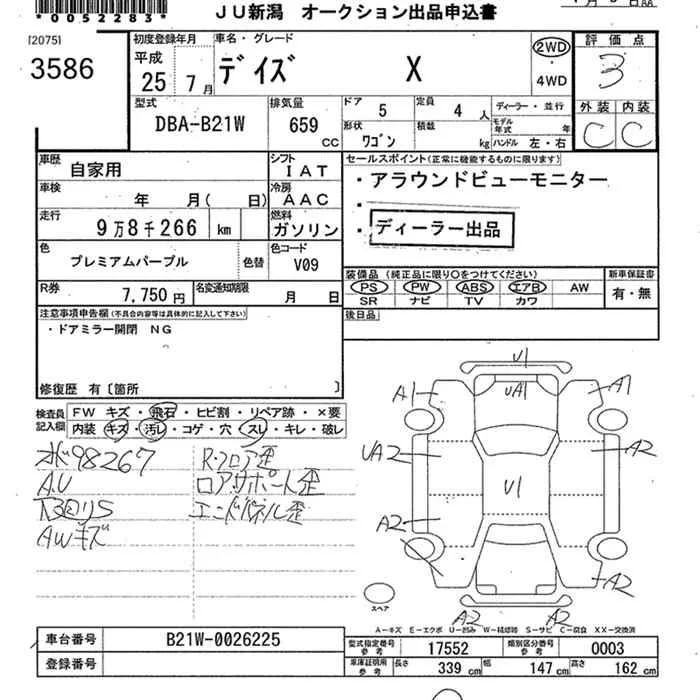 *0052283*
JU新潟 オークション出品申込書
[2075]
3586
初度登録年月
平成
25 7 月
車名・グレード
デイズ X
2WD
・
4WD
評価点
3
外装 内装
C C
型式
DBA-B21W
排気量
659 CC
ドア 5
定員 4 人
形状 ワゴン
積載 kg
ディーラー・並行
モデル年式 年
ハンドル 左・右
車歴 自家用
シフト IAT
車検 年 月( 日)
冷房 AAC
走行 9万8千266 km
燃料 ガソリン
色 プレミアムパープル 色替
色コード V09
R券 7,750 円
名変通知期限 月 日
セールスポイント(正常に機能するものに限ります)
・アラウンドビューモニター
・
・ ディーラー出品
装備品 (純正品に限り○をつけてください)
PS PW ABS エアB AW
SR ナビ TV カワ
新車保証書
有・無
後日品
注意事項申告欄(不具合内容等は具体的に記入して下さい)
・ドアミラー開閉 NG
修復歴 有〔箇所 〕
検査員記入欄
FW キズ・飛石・ヒビ割・リペア跡・×要
内装・キズ・汚レ・コゲ・穴・スレ・キレ・破レ
98267 R.フロア歪
AU ロアサポート歪
エンドパネル歪
AWキズ
U1
A1 UA1 A1
UA2 A2
U1
A2
A2
A2 A2
スペア
A-キズ E-エクボ U-凹み W-補修跡 S-サビ C-腐食 XX-交換済
車台番号 B21W-0026225
登録番号
型式指定番号 参考 17552
類別区分番号 参考 0003
車庫証明用 参考 長さ 339 cm 幅 147 cm 高さ 162 cm